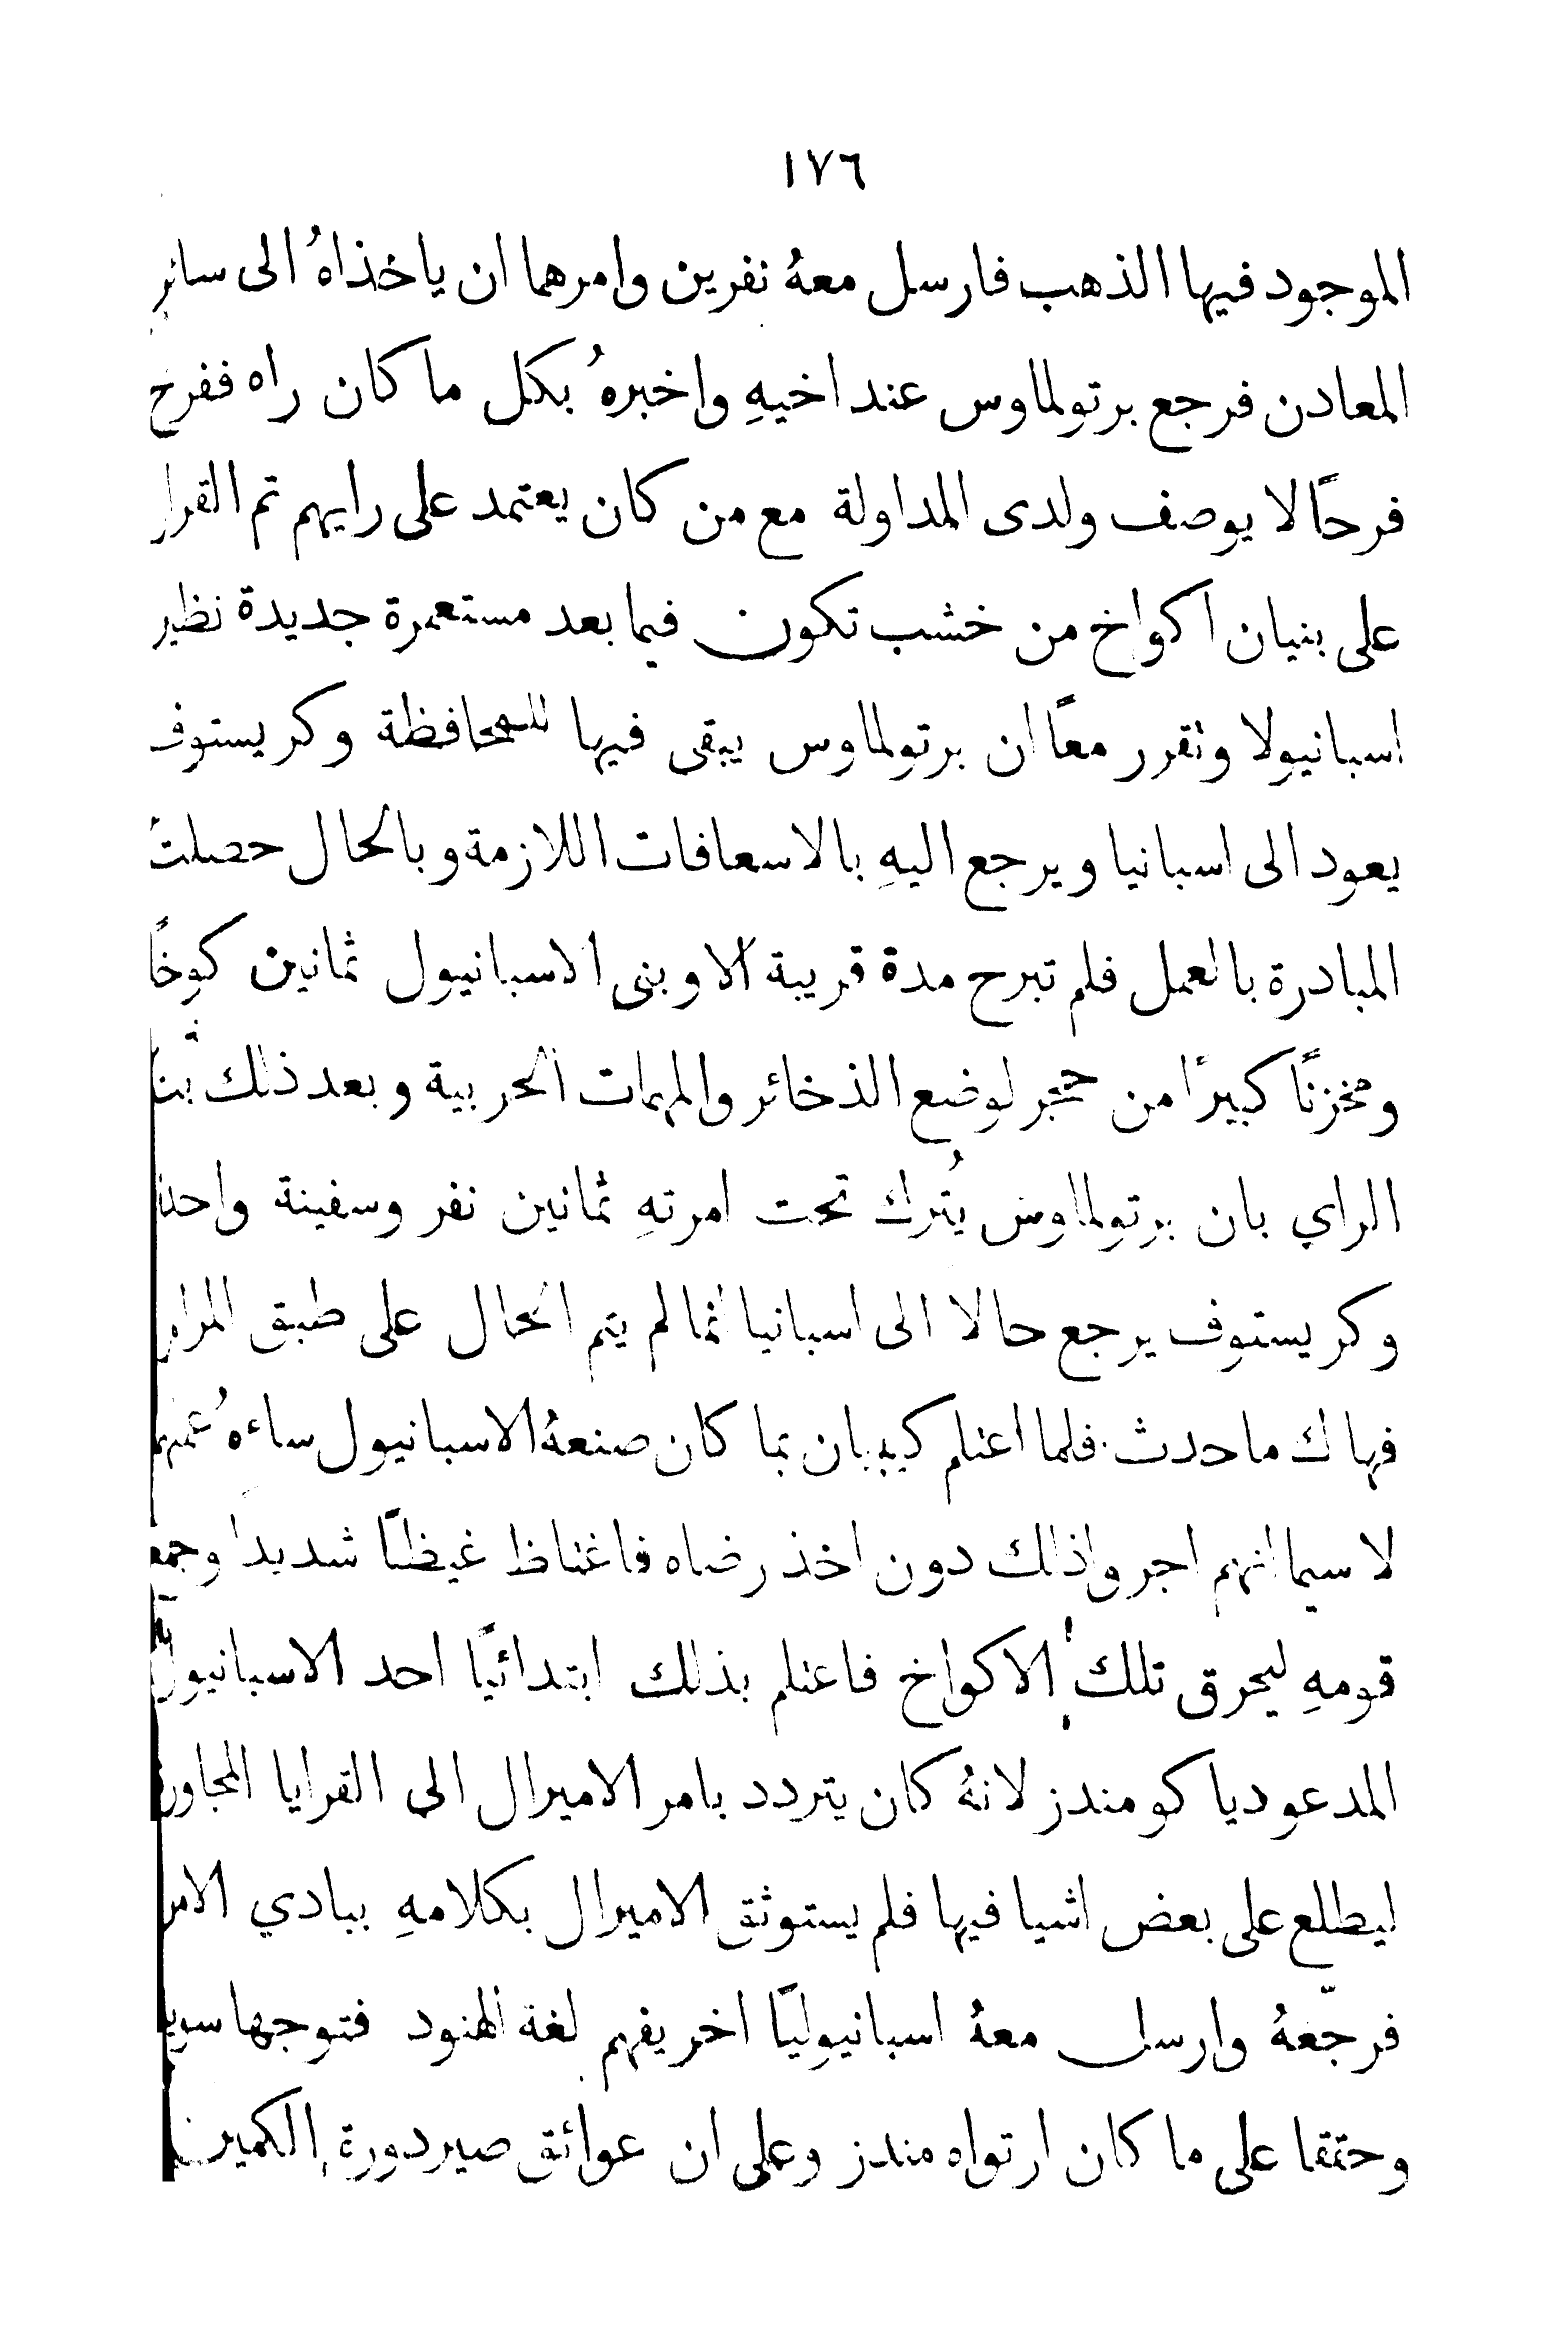 ١٧٦
الموجود فيها الذهب فارسل معهُ نفرين وامرهما ان ياخذاهُ الى سائر
المعادن فرجع برتولماوس عند اخيهِ واخبرهُ بكل ما كان راه ففرح
فرحًا لا يوصف ولدى المداولة مع من كان يعتمد على رايهم تم القرار
على بنيان اكواخ من خشب تكون فيما بعد مستعمرة جديدة نظير
اسبانيولا وتقرر معًا ان برتولماوس يبقى فيها للمحافظة وكريستوف
يعود الى اسبانيا ويرجع اليهِ بالاسعافات اللازمة وبالحال حصلت
المبادرة بالعمل فلم تبرح مدة قريبة الا وبنى الاسبانيول ثمانين كوخًا
ومخزنًا كبيرًا من حجر لوضع الذخائر والمهمات الحربية وبعد ذلك
الراي بان برتولماوس يُترك تحت امرتهِ ثمانين نفر وسفينة واحدة
وكريستوف يرجع حالا الى اسبانيا انما لم يتم الحال على طبق المرام
فهاك ما حدث. فلما اعتلم كيبيان بما كان صنعهُ الاسبانيول ساءهُ
لا سيما انهم اجروا ذلك دون اخذ رضاه فاغتاظ غيظًا شديدا وجمع
قومهِ ليحرق تلك الاكواخ فاعتلم بذلك ابتدائيًا احد الاسبانيول
المدعو دياكو مندز لانهُ كان يتردد بامر الاميرال الى القرايا المجاورة
ليطلع على بعض اشيا فيها فلم يستوثق الاميرال بكلامهِ ببادي الامر
فرجّعهُ وارسل معهُ اسبانيوليًا اخر يفهم لغة الهنود فتوجها سريعا
وحققا على ما كان ارتواه مندز وعلى ان عوائق صيردورة الكمين